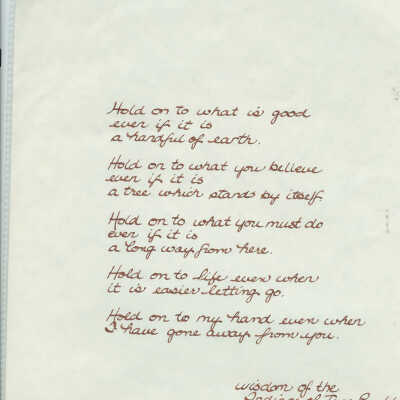 Hold on to what is good
even if it is
a handful of earth.
Hold on to what you believe
even if it is
a tree which stands by itself.
Hold on to what you must do
even if it is
a long way from here.
Hold on to life even when
it is easier letting go.
Hold on to my hand even when
I have gone away from you.
wisdom of the